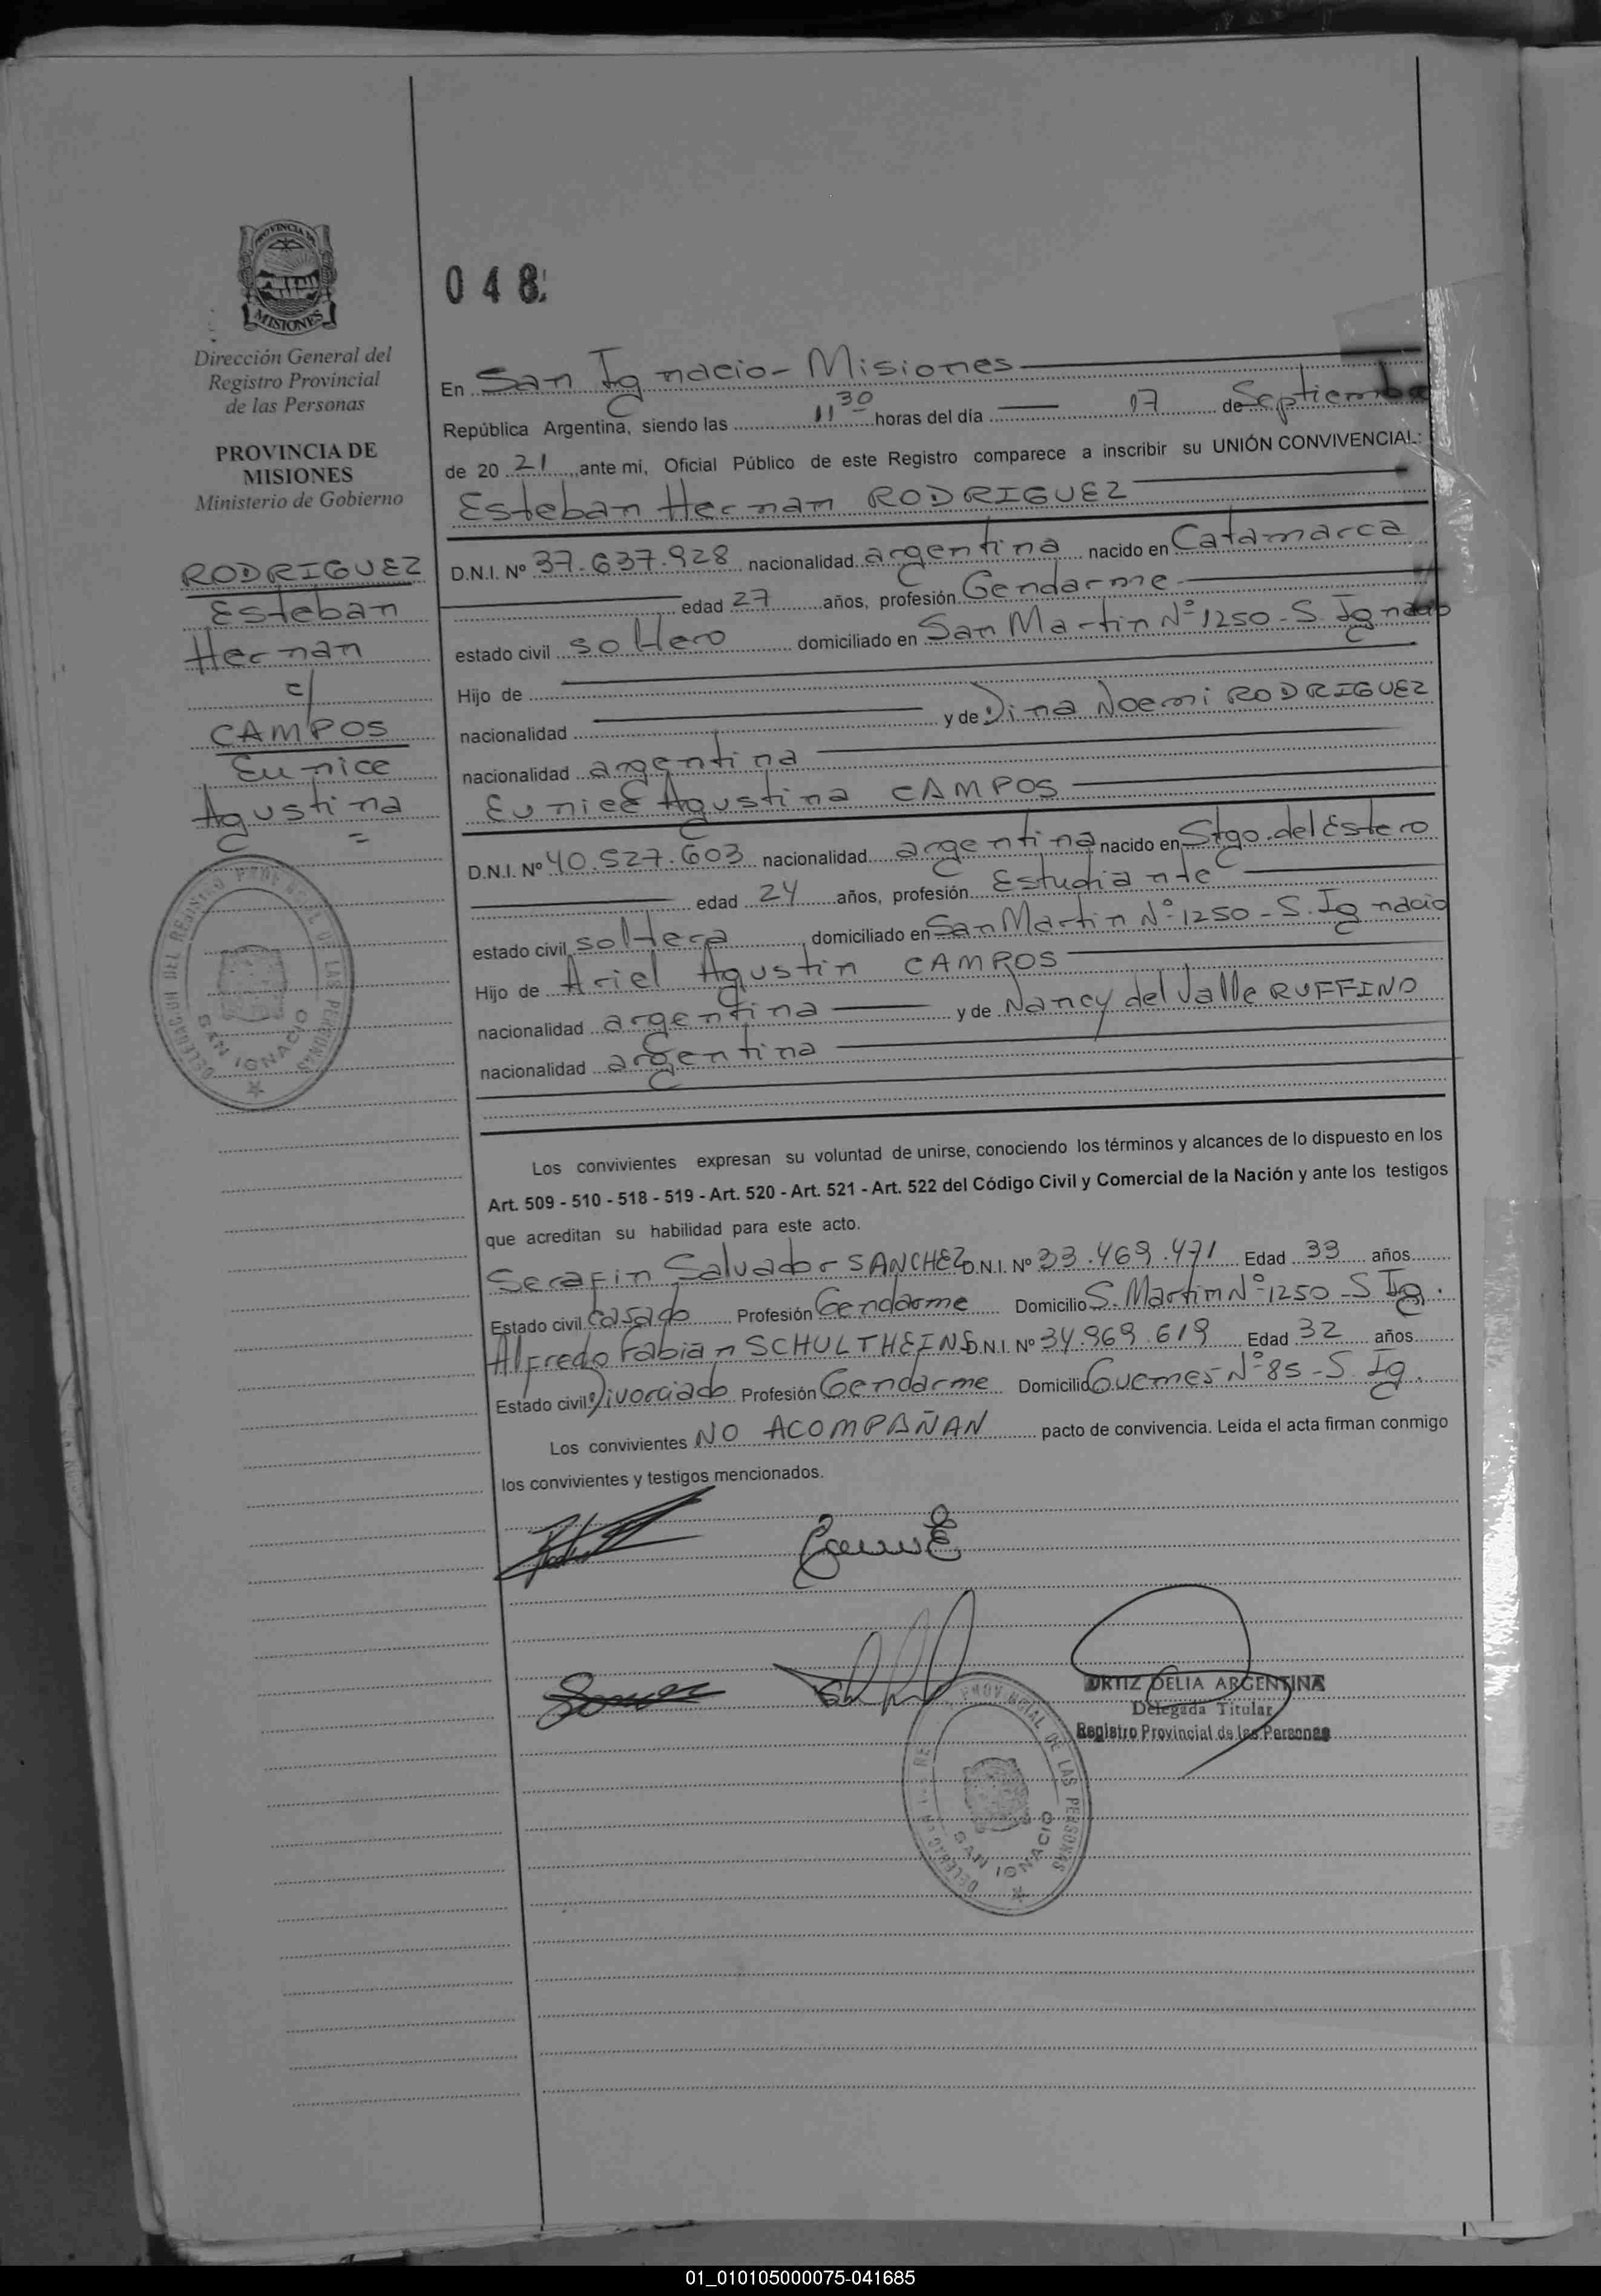 PROVINCIA DE
MISIONES
Dirección General del
Registro Provincial
de las Personas
PROVINCIA DE
MISIONES
Ministerio de Gobierno
RODRIGUEZ
Esteban
Hernan
c/
CAMPOS
Eunice
Agustina
=
DELEGACION DEL REGISTRO PROVINCIAL DE LAS PERSONAS
SAN IGNACIO
048
En San Ignacio - Misiones
República Argentina, siendo las 11 30 horas del día 17 de Septiembre
de 20 21 ,ante mi, Oficial Público de este Registro comparece a inscribir su UNIÓN CONVIVENCIAL:
Esteban Hernan RODRIGUEZ
D.N.I. Nº 37.637.928 nacionalidad argentina nacido en Catamarca
edad 27 años, profesión Gendarme
estado civil soltero domiciliado en San Martin Nº 1250 - S. Ignacio
Hijo de
nacionalidad y de Dina Noemi RODRIGUEZ
nacionalidad argentina
Eunice Agustina CAMPOS
D.N.I. Nº 40.527.603 nacionalidad argentina nacido en Stgo. del Estero
edad 24 años, profesión Estudiante
estado civil soltera domiciliado en San Martin Nº 1250 - S. Ignacio
Hijo de Ariel Agustin CAMPOS
nacionalidad argentina y de Nancy del Valle RUFFINO
nacionalidad argentina
Los convivientes expresan su voluntad de unirse, conociendo los términos y alcances de lo dispuesto en los
Art. 509 - 510 - 518 - 519 - Art. 520 - Art. 521 - Art. 522 del Código Civil y Comercial de la Nación y ante los testigos
que acreditan su habilidad para este acto.
Serafin Salvador SANCHEZ D.N.I. Nº 33.469.471 Edad 33 años
Estado civil Casado Profesión Gendarme Domicilio S. Martin Nº 1250 - S Ig.
Alfredo Fabian SCHULTHEINS D.N.I. Nº 34.969.619 Edad 32 años
Estado civil Divorciado Profesión Gendarme Domicilio Guemes Nº 85 - S. Ig.
Los convivientes NO ACOMPAÑAN pacto de convivencia. Leida el acta firman conmigo
los convivientes y testigos mencionados.
ORTIZ DELIA ARGENTINA
Delegada Titular
Registro Provincial de las Personas
PROVINCIAL DE LAS PERSONAS
SAN IGNACIO
01_010105000075-041685